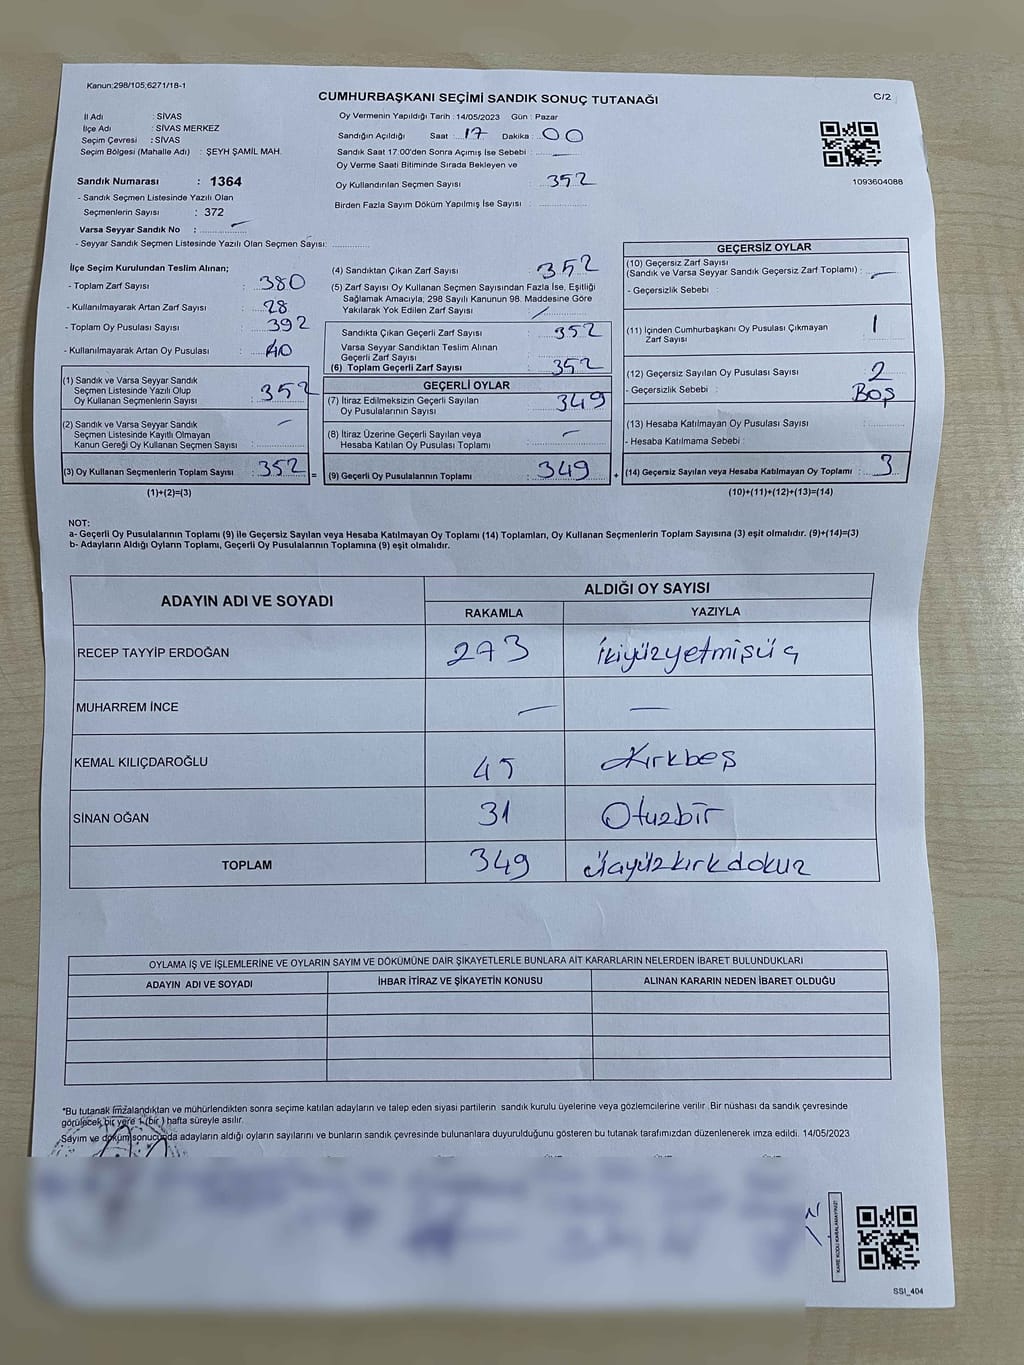 Kanun:298/105,6271/18-1
CUMHURBAŞKANI SEÇİMİ SANDIK SONUÇ TUTANAĞI
C/2
İl Adı : SİVAS
İlçe Adı : SİVAS MERKEZ
Seçim Çevresi : SİVAS
Seçim Bölgesi (Mahalle Adı) : ŞEYH ŞAMİL MAH.
Sandık Numarası : 1364
- Sandık Seçmen Listesinde Yazılı Olan
Seçmenlerin Sayısı : 372
Varsa Seyyar Sandık No : —
- Seyyar Sandık Seçmen Listesinde Yazılı Olan Seçmen Sayısı: ..................
Oy Vermenin Yapıldığı Tarih : 14/05/2023 Gün : Pazar
Sandığın Açıldığı Saat : 17 Dakika : 00
Sandık Saat 17:00'den Sonra Açımış İse Sebebi : —
Oy Verme Saati Bitiminde Sırada Bekleyen ve
Oy Kullandırılan Seçmen Sayısı : 352
Birden Fazla Sayım Döküm Yapılmış İse Sayısı : ..................
1093604088
İlçe Seçim Kurulundan Teslim Alınan;
- Toplam Zarf Sayısı : 380
- Kullanılmayarak Artan Zarf Sayısı : 28
- Toplam Oy Pusulası Sayısı : 392
- Kullanılmayarak Artan Oy Pusulası : 40
(1) Sandık ve Varsa Seyyar Sandık
Seçmen Listesinde Yazılı Olup
Oy Kullanan Seçmenlerin Sayısı : 352
(2) Sandık ve Varsa Seyyar Sandık
Seçmen Listesinde Kayıtlı Olmayan
Kanun Gereği Oy Kullanan Seçmen Sayısı : —
(3) Oy Kullanan Seçmenlerin Toplam Sayısı : 352 =
(1)+(2)=(3)
(4) Sandıktan Çıkan Zarf Sayısı : 352
(5) Zarf Sayısı Oy Kullanan Seçmen Sayısından Fazla İse, Eşitliği
Sağlamak Amacıyla, 298 Sayılı Kanunun 98. Maddesine Göre
Yakılarak Yok Edilen Zarf Sayısı : /
Sandıkta Çıkan Geçerli Zarf Sayısı : 352
Varsa Seyyar Sandıktan Teslim Alınan
Geçerli Zarf Sayısı :
(6) Toplam Geçerli Zarf Sayısı : 352
GEÇERLİ OYLAR
(7) İtiraz Edilmeksizin Geçerli Sayılan
Oy Pusulalarının Sayısı : 349
(8) İtiraz Üzerine Geçerli Sayılan veya
Hesaba Katılan Oy Pusulası Toplamı : —
(9) Geçerli Oy Pusulalarının Toplamı : 349 +
GEÇERSİZ OYLAR
(10) Geçersiz Zarf Sayısı
(Sandık ve Varsa Seyyar Sandık Geçersiz Zarf Toplamı) : —
- Geçersizlik Sebebi :
(11) İçinden Cumhurbaşkanı Oy Pusulası Çıkmayan
Zarf Sayısı : 1
(12) Geçersiz Sayılan Oy Pusulası Sayısı : 2
- Geçersizlik Sebebi : Boş
(13) Hesaba Katılmayan Oy Pusulası Sayısı :
- Hesaba Katılmama Sebebi :
(14) Geçersiz Sayılan veya Hesaba Katılmayan Oy Toplamı : 3
(10)+(11)+(12)+(13)=(14)
NOT:
a- Geçerli Oy Pusulalarının Toplamı (9) ile Geçersiz Sayılan veya Hesaba Katılmayan Oy Toplamı (14) Toplamları, Oy Kullanan Seçmenlerin Toplam Sayısına (3) eşit olmalıdır. (9)+(14)=(3)
b- Adayların Aldığı Oyların Toplamı, Geçerli Oy Pusulalarının Toplamına (9) eşit olmalıdır.
ADAYIN ADI VE SOYADI ALDIĞI OY SAYISI
RAKAMLA YAZIYLA
RECEP TAYYİP ERDOĞAN 273 ikiyüzyetmişüç
MUHARREM İNCE — —
KEMAL KILIÇDAROĞLU 45 Kırkbeş
SİNAN OĞAN 31 Otuzbir
TOPLAM 349 üçyüzkırkdokuz
OYLAMA İŞ VE İŞLEMLERİNE VE OYLARIN SAYIM VE DÖKÜMÜNE DAİR ŞİKAYETLERLE BUNLARA AİT KARARLARIN NELERDEN İBARET BULUNDUKLARI
ADAYIN ADI VE SOYADI İHBAR İTİRAZ VE ŞİKAYETİN KONUSU ALINAN KARARIN NEDEN İBARET OLDUĞU
*Bu tutanak imzalandıktan ve mühürlendikten sonra seçime katılan adayların ve talep eden siyasi partilerin sandık kurulu üyelerine veya gözlemcilerine verilir. Bir nüshası da sandık çevresinde
görülecek bir yere 1 (bir ) hafta süreyle asılır.
Sayım ve döküm sonucunda adayların aldığı oyların sayılarını ve bunların sandık çevresinde bulunanlara duyurulduğunu gösteren bu tutanak tarafımızdan düzenlenerek imza edildi. 14/05/2023
KARE KODU KARALAMAYINIZ!
SSI_404